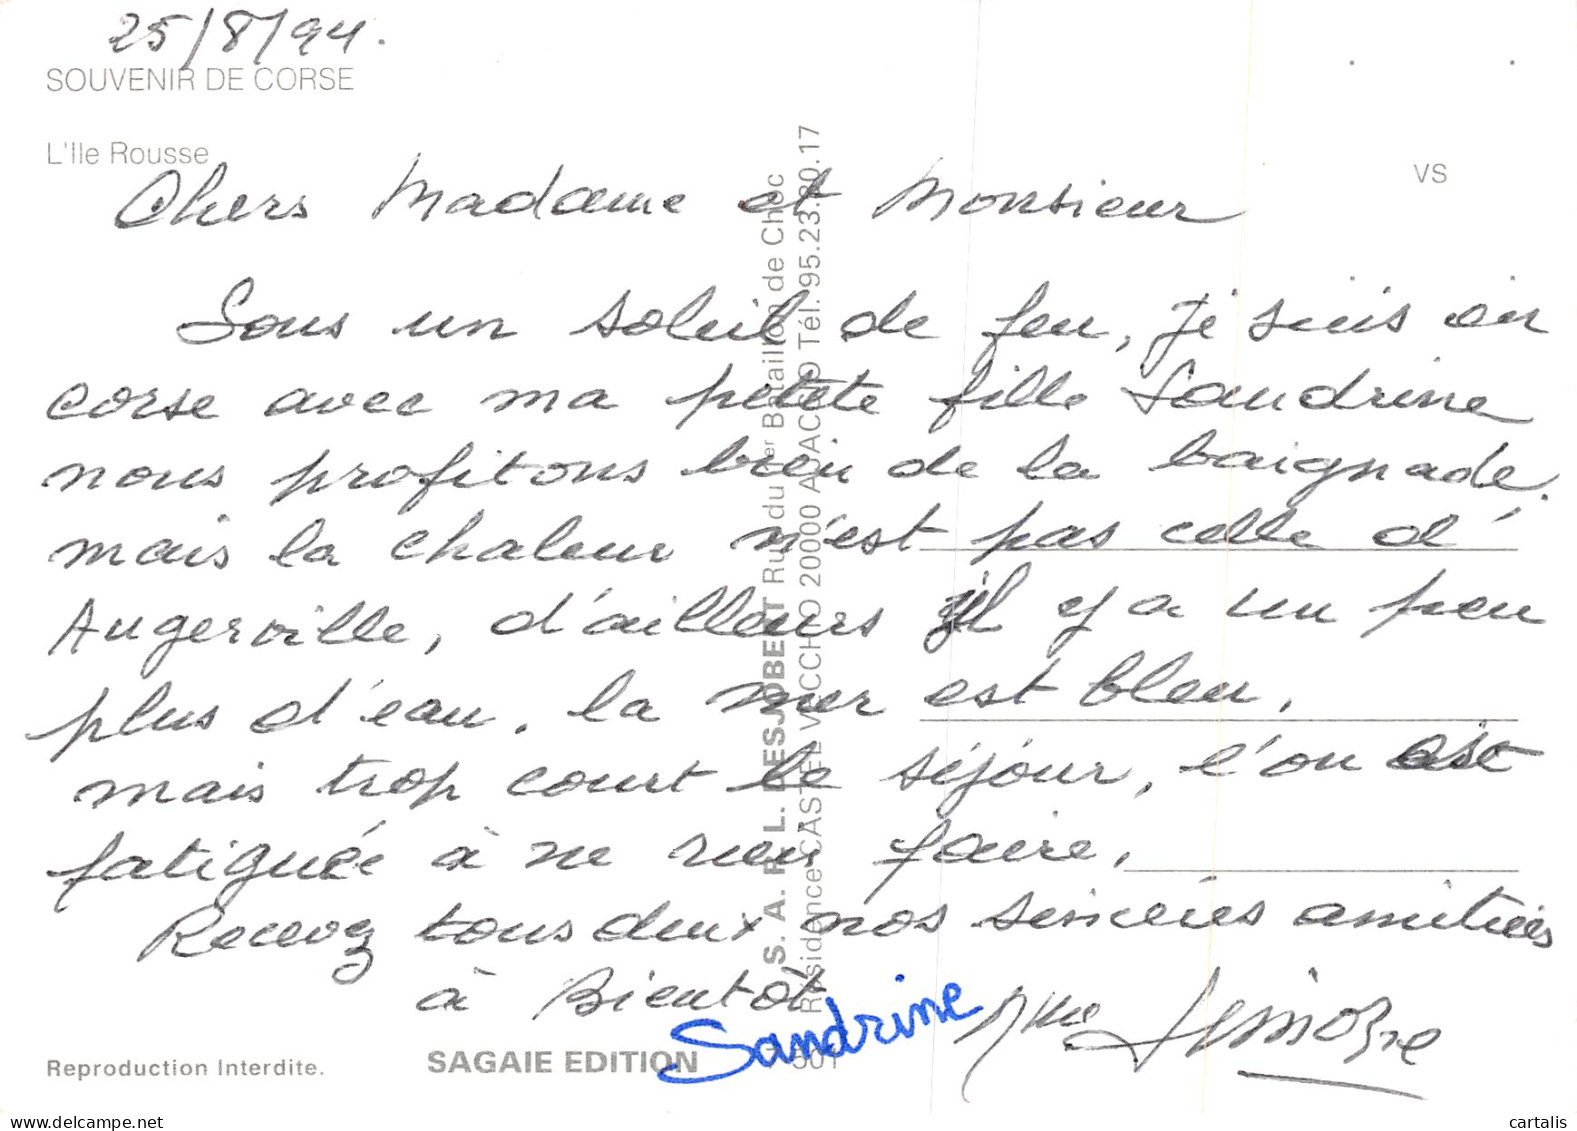 25/8/94.
SOUVENIR DE CORSE
L'Ile Rousse
VS
Chers Madame et Monsieur
Sous un soleil de feu, je suis en
corse avec ma petite fille Sandrine
nous profitons bien de la baignade.
mais la chaleur n'est pas celle d'
Augerville, d'ailleurs il y a un peu
plus d'eau. la mer est bleu.
mais trop court le séjour, l'on est
fatiguée à ne rien faire.
Recevez tous deux nos sincères amitiés
à Bientôt
Sandrine
Mme
S. A. R. L. LESJOBERT Rue du 1er Bataillon de Choc
Résidence CASTEL VECCHIO 20000 AJACCIO Tél. 95.23.80.17
Reproduction Interdite.
SAGAIE EDITION
501
www.delcampe.net
cartalis